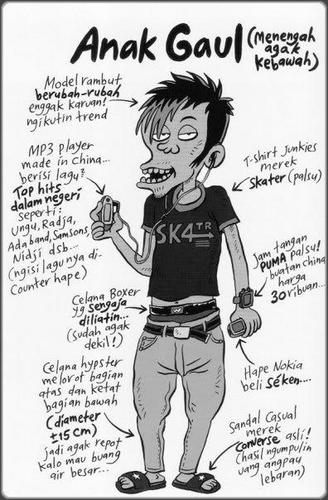 Anak Gaul (Menengah
agak
kebawah)
Model rambut
berubah-rubah
enggak karuan!
ngikutin trend
MP3 player
made in China...
berisi lagu²
Top hits
dalam negeri
seperti:
Ungu, Radja,
Ada band, Samsons,
Nidji dsb...
(ngisi lagunya di
Counter hape)
T-shirt Junkies
merek
Skater (palsu)
SK4TR
jam tangan
PUMA palsu!
buatan china
harga
30 ribuan...
Celana Boxer
yg sengaja
diliatin...
(sudah agak
dekil!)
Celana hypster
melorot bagian
atas dan ketat
bagian bawah
(diameter
±15 cm)
jadi agak repot
kalo mau buang
air besar...
Hape Nokia
beli séken....
Sandal Casual
merek
Converse asli!
(hasil ngumpulin
uang angpau
lebaran)